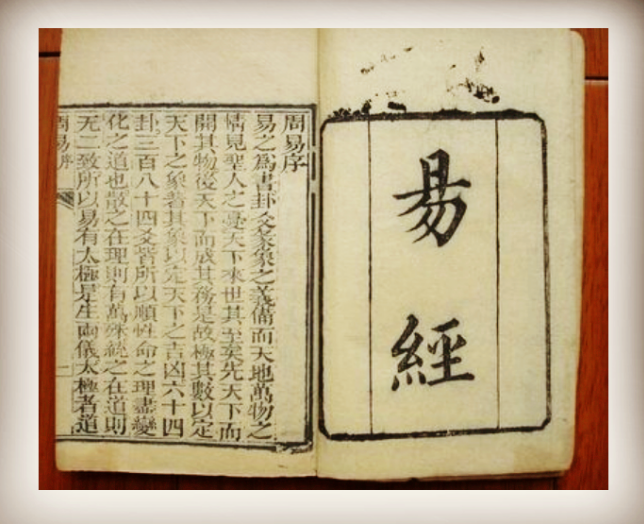 易經
周易序
易之爲書卦爻彖象之義備而天地萬物之
情見聖人之憂天下來世其至矣先天下而
開其物後天下而成其務是故極其數以定
天下之象著其象以定天下之吉凶六十四
卦三百八十四爻皆所以順性命之理盡變
化之道也散之在理則有萬殊統之在道則
无二致所以易有太極是生兩儀太極者道
周易序
二